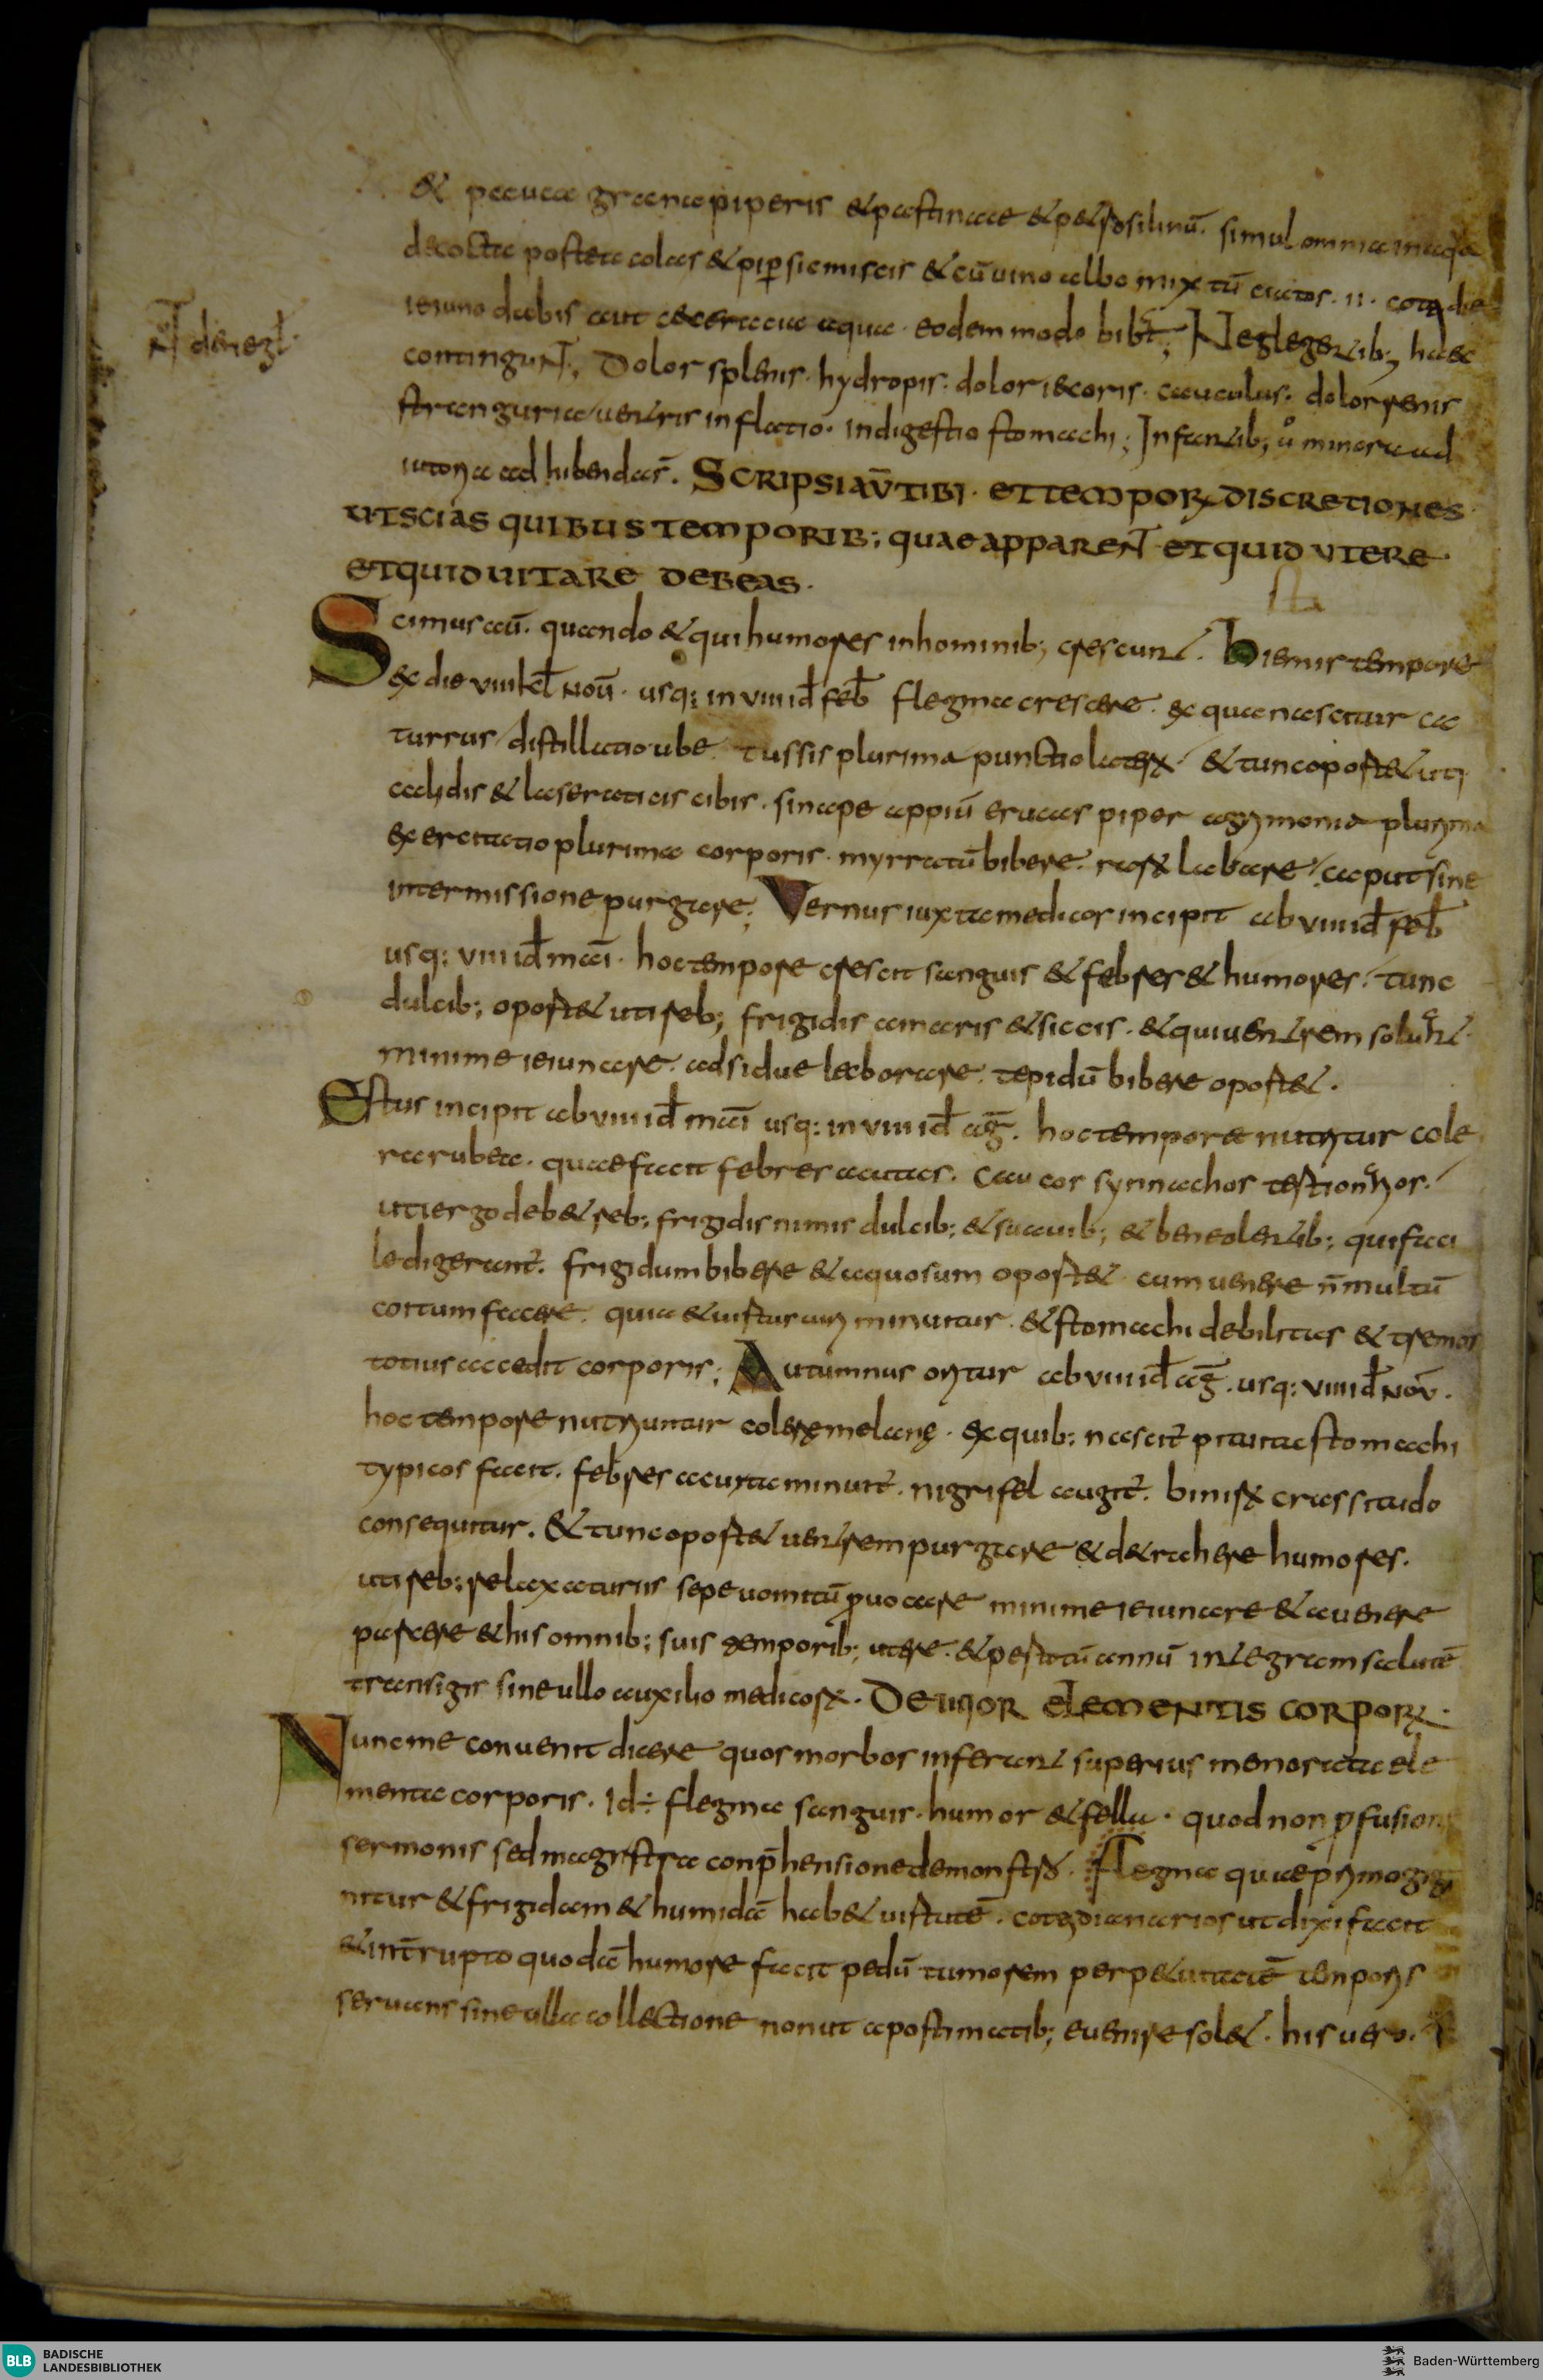 & pauca grana piperis & pastinace & petrosilinū. simul omnia in aqua
decocta postea colas & pip sic miscis & cū uino albo mixtū ciatos. ii. cotidie
ieiuno dabis aut ceteraciu aqua. eodem modo bibat; Neglegentib; haec
N denegl.
contingunt; Dolor splenis. hydropis. dolor iecoris. cauculus. dolor renis
stranguria uentris inflatio. indigestio stomachi; Infantib; ů minora ad
iutoria adhibendas̄. SCRIPSI AŪ TIBI. ET TEMPORꝜ DISCRETIONES
UT SCIAS QUIBUS TEMPORIB; QUAE APPARENT ET QUID UTERE
ET QUID UITARE DEBEAS.
Scimus aū. quando & qui humores in hominib; crescunt. Hiemis tempore
ex die viiii kł nou̅. usq; in viiii id̄ feb̄ flegma crescere. ex qua nascitur ca
turrus distillatio ube. tussis plurima punctio laterꝝ & tunc oportet uti
calidis & laseraticis cibis. sinape appiū erucas piper agrimonia plurima
exercitatio plurima corporis. myrratū bibere. raꝝ labare. caput sine
intermissione purgare; Vernus iuxta medicos incipit ab viiii id̄ feb̄
usq; viiii id̄ mai̅. hoc tempore crescit sanguis & febres & humores. tunc
dulcib; oportet uti reb; frigidis amaris & siccis. & qui uentrem soluunt
minime ieiunare. adsidue laborare. tepidū bibere oportet.
Estus incipit ab viiii id̄ mai̅ usq; in viiii id̄ ag̅. hoc tempore nutritur cole
ra rubea. quae facit febres acutas. caucos synnachos
uti ergo debet reb; frigidis nimis dulcib; & suauib; & beneolentib; qui faci
le digerant. frigidum bibere & aquosum oportet cum uenere n̄ multū
coitum facere. quia & uirtus uiri minuitur. & stomachi debilitas & tremor
totius accedit corporis; Autumnus oritur ab viiii id̄ ag̅. usq; viiii id̄ nōv.
hoc tempore nutriuntur colerę melanę. ex quib; nascit̄ pituitae stomachi
typicos facit. febres acuta minuit̄. nigri fel augit̄. binisꝝ crassitudo
consequitur. & tunc oportet uentrem purgare & detrahere humores.
uti reb; relaxaturiis sepe uomitū ꝓuocare minime ieiunare & a uenere
parcere & his omnib; suis temporib; utere. & per totū annū integram salutē
transigis sine ullo auxilio medicoꝝ. DE IIII OR ELEMENTIS CORPORꝜ.
Nunc me conuenit dicere quos morbos inferant superius memorata ele
menta corporis. Id÷ flegma sanguis. humor & fella. quod non ꝓfusion
sermonis sed magistra conp̄hensione demonstꝝ. Flegma quae primo gig
nitur & frigidam & humidā habet uirtutē. cotidianarios ut dixi facit
& int̄rupto quodā humore facit pedū tumorem perpetuitatē temporis
seruans sine ulla collectione non ut apostimatib; euenire solet. his uero.
BLB BADISCHE
LANDESBIBLIOTHEK
Baden-Württemberg